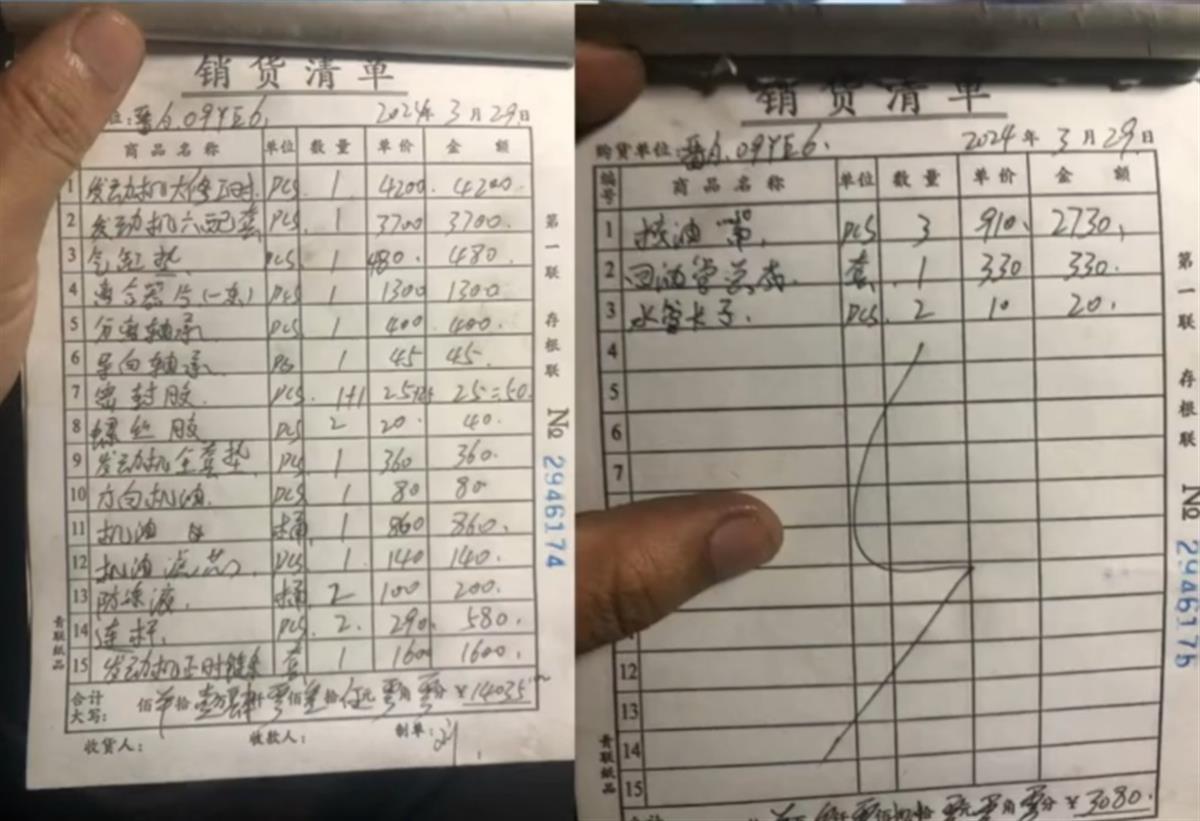 销货清单
位:晋A.09YE6. 2024年3月29日
商品名称 单位 数量 单价 金额
1 发动机大修工时. PCS. 1 4200. 4200
2 发动机六配套 PCS. 1 3700 3700.
3 气缸垫. PCS. 1 480. 480.
4 离合器片(一套) PCS 1 1300 1300
5 分离轴承 PCS 1 400 400.
6 导向轴承 PCS 1 45 45.
7 密封胶. PCS. 1+1 25 25=50.
8 螺丝胶 PCS 2 20. 40.
9 发动机全套垫. PCS. 1 360 360.
10 方向机油. PCS 1 80 80
11 机油 桶 1 860 860.
12 机油滤芯. PCS 1. 140 140.
13 防冻液. 桶 2 100 200.
14 连杆. PCS. 2. 290. 580.
15 发动机正时链条 套 1 1600. 1600.
合计大写: 佰 拾壹万肆仟零佰叁拾伍元零角零分 ¥14035
收货人: 收款人: 制单:刘
第一联 存根联 № 2946174
青联纸品
销货清单
购货单位:晋A.09YE6. 2024年3月29日
编号 商品名称 单位 数量 单价 金额
1 PCS 3 910. 2730.
2 回油管总成. 套. 1 330 330.
3 水管卡子. PCS. 2 10 20.
4
5
6
7
12
13
14
15
¥3080.
第一联 存根联 № 2946175
青联纸品